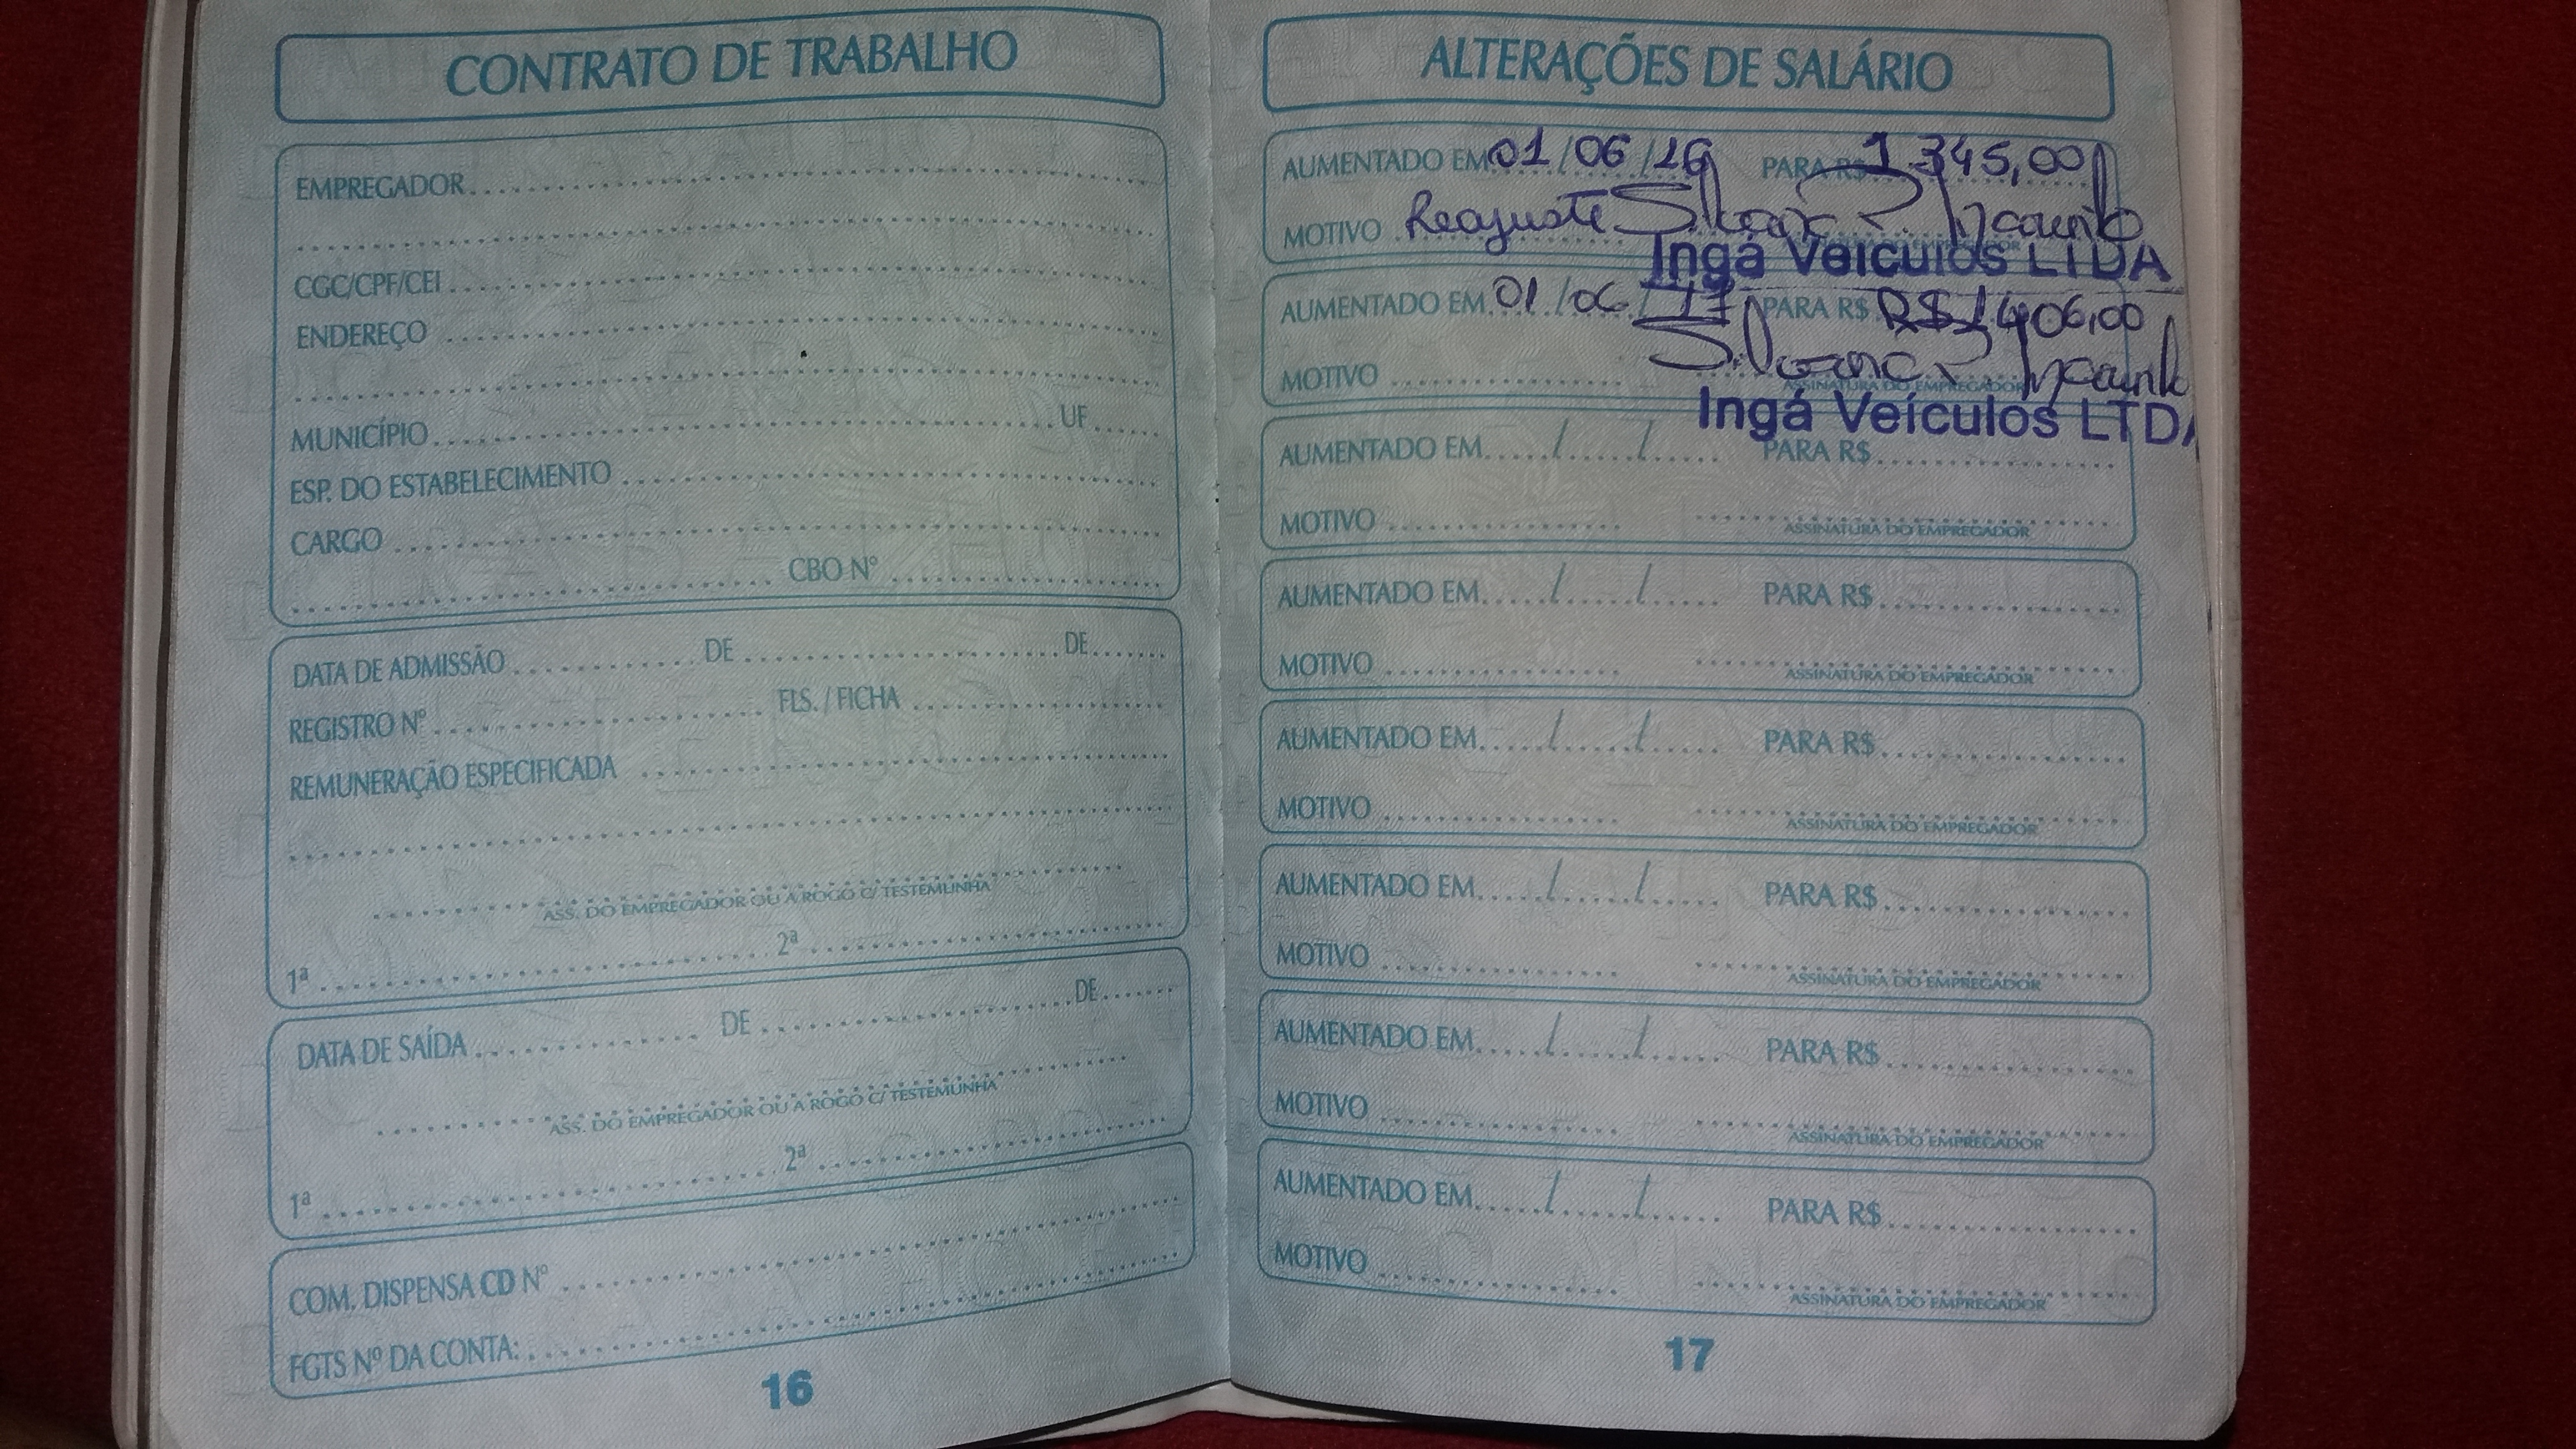 CONTRATO DE TRABALHO
EMPREGADOR
CGC/CPF/CEI
ENDEREÇO
MUNICÍPIO UF
ESP. DO ESTABELECIMENTO
CARGO
CBO Nº
DATA DE ADMISSÃO DE DE
REGISTRO Nº FLS. / FICHA
REMUNERAÇÃO ESPECIFICADA
ASS. DO EMPREGADOR OU A ROGO C/ TESTEMUNHA
1ª 2ª
DATA DE SAÍDA DE DE
ASS. DO EMPREGADOR OU A ROGO C/ TESTEMUNHA
1ª 2ª
COM. DISPENSA CD Nº
FGTS Nº DA CONTA:
16
ALTERAÇÕES DE SALÁRIO
AUMENTADO EM 01/06/16 PARA R$ 1.345,00
MOTIVO Reajuste
Ingá Veículos LTDA
AUMENTADO EM 01/06/17 PARA R$ R$ 1406,00
MOTIVO
ASSINATURA DO EMPREGADOR
Ingá Veículos LTDA
AUMENTADO EM / / PARA R$
MOTIVO
ASSINATURA DO EMPREGADOR
AUMENTADO EM / / PARA R$
MOTIVO
ASSINATURA DO EMPREGADOR
AUMENTADO EM / / PARA R$
MOTIVO
ASSINATURA DO EMPREGADOR
AUMENTADO EM / / PARA R$
MOTIVO
ASSINATURA DO EMPREGADOR
AUMENTADO EM / / PARA R$
MOTIVO
ASSINATURA DO EMPREGADOR
AUMENTADO EM / / PARA R$
MOTIVO
ASSINATURA DO EMPREGADOR
17